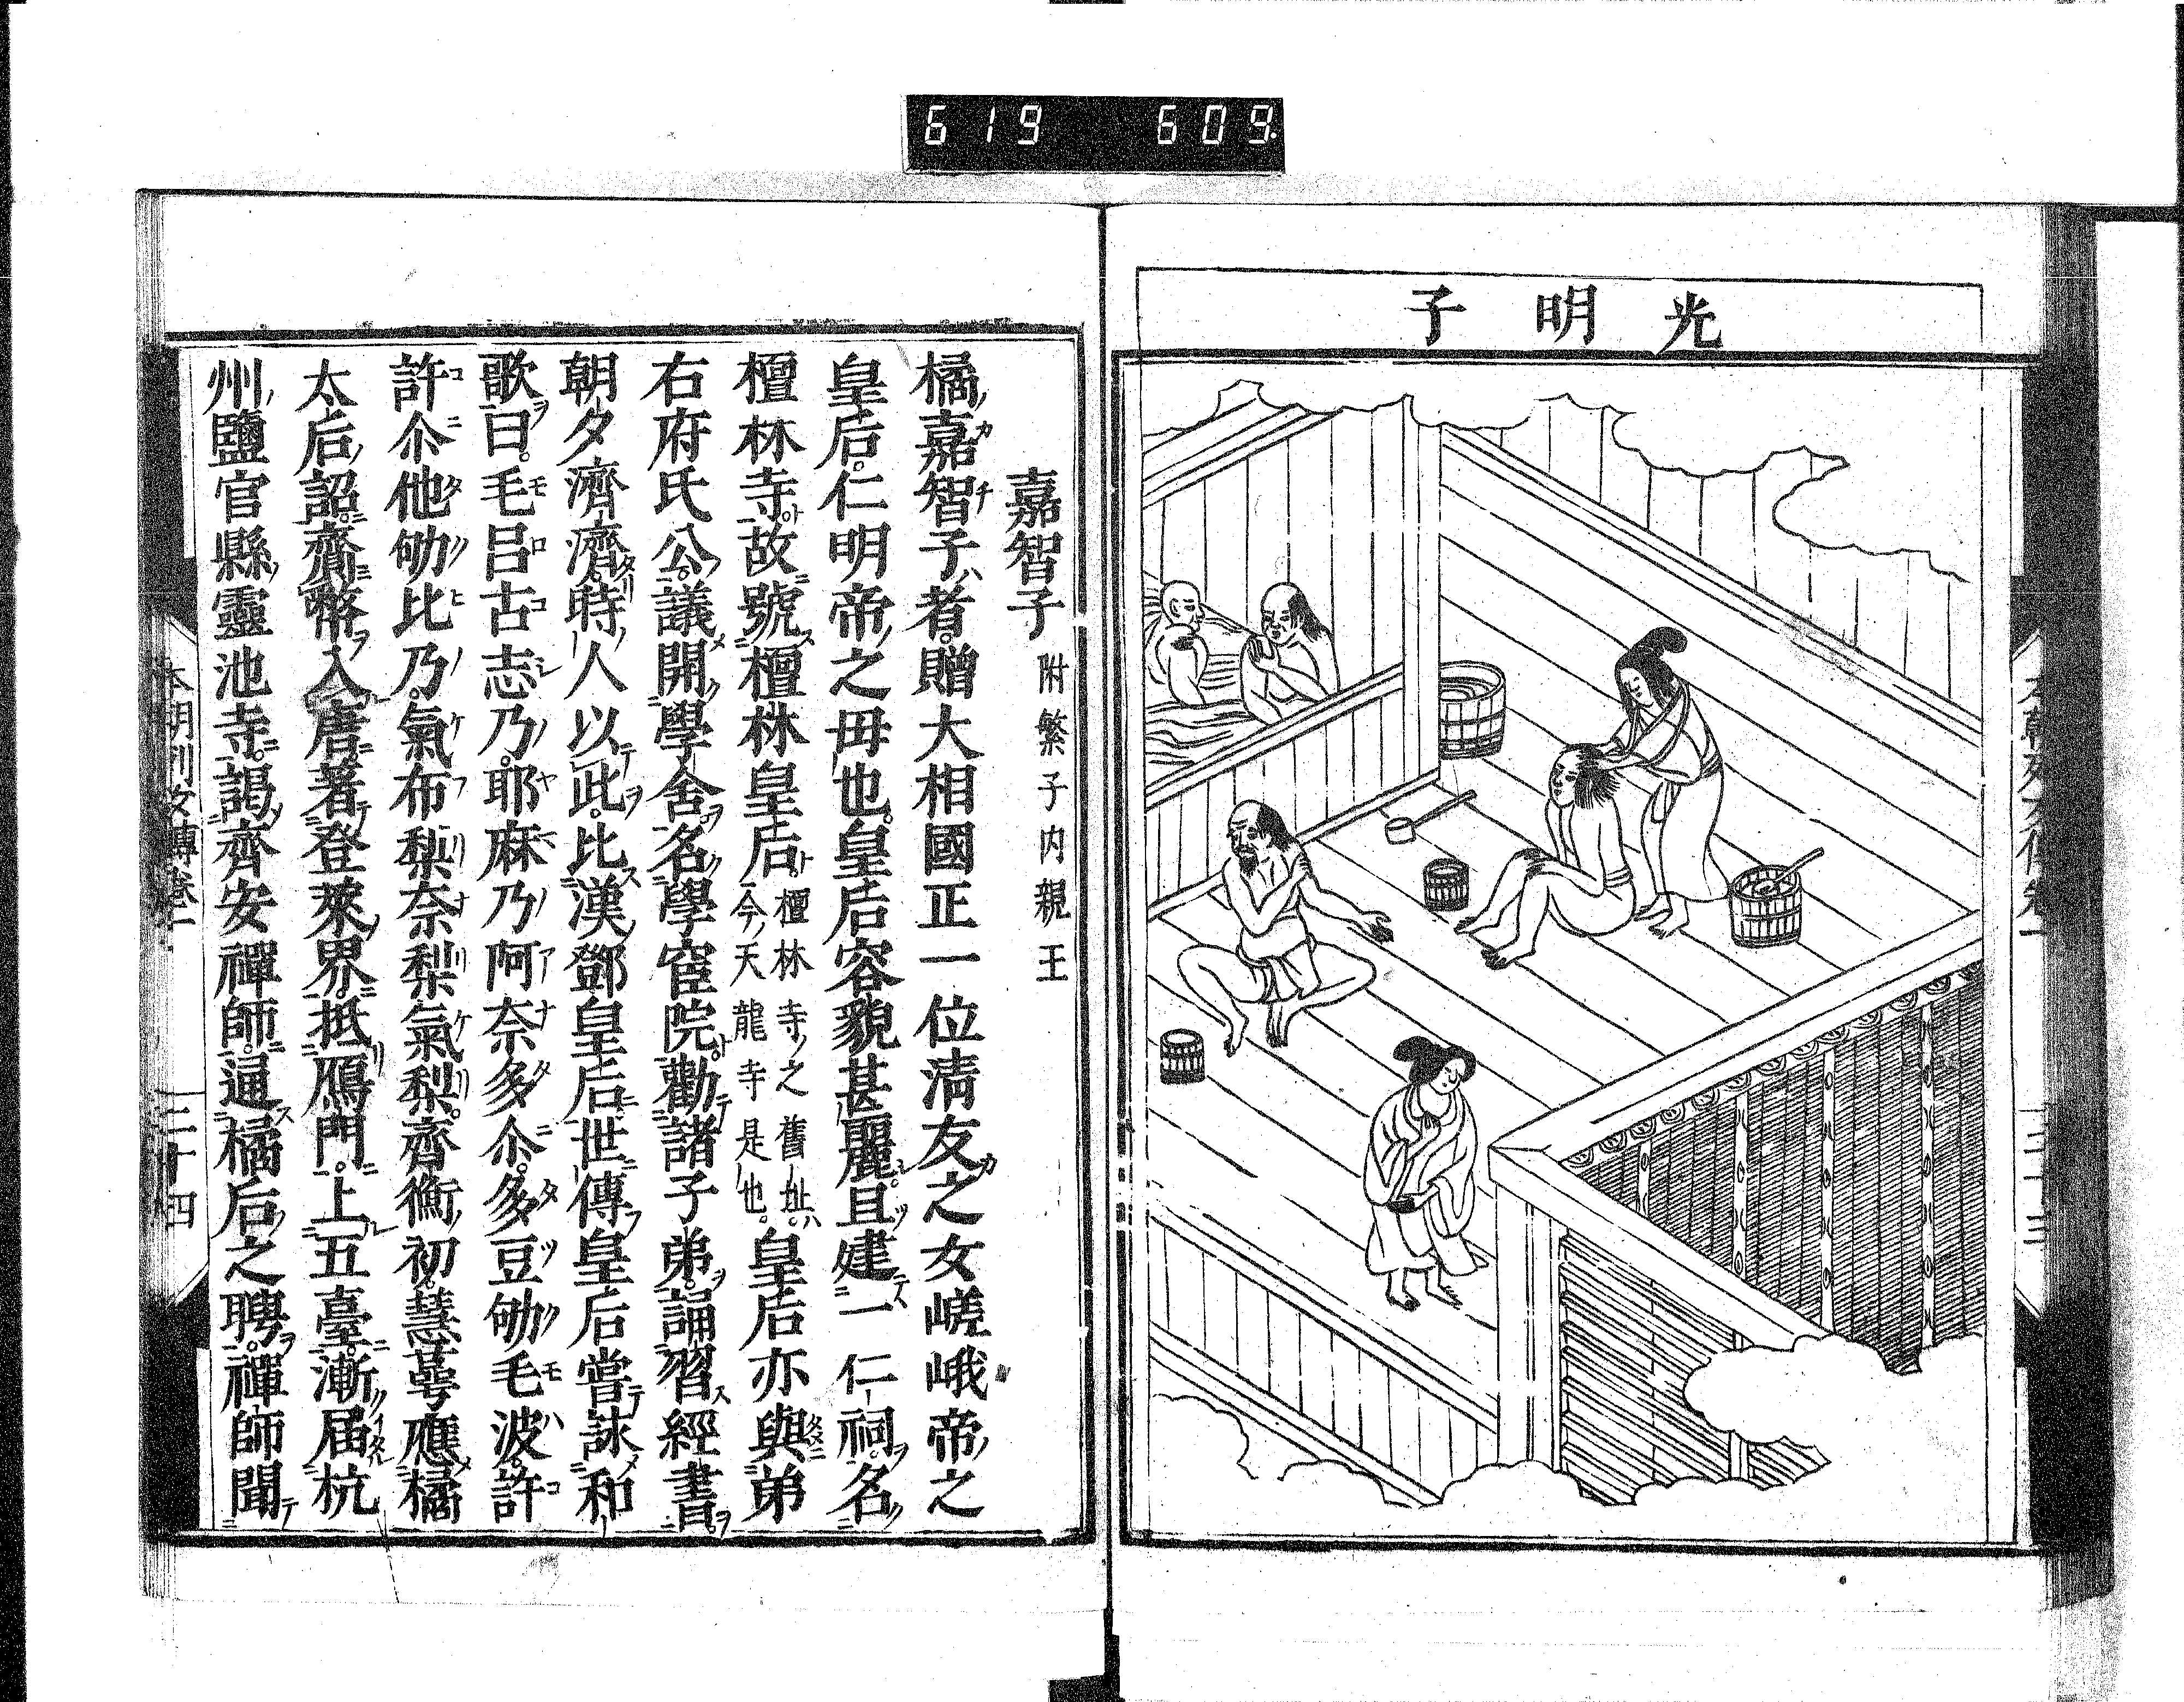 619 609
光明子
嘉智子 附繁子内親王
橘嘉智子者。贈大相國正一位清友之女嵯峨帝之
皇后。仁明帝之母也。皇后容貌甚麗。且建一仁祠。名
檀林寺。故號檀林皇后。檀林寺之舊址。今天龍寺是也。皇后亦與弟
右府氏公。議開學舍。名學官院。勸諸子弟。誦習經書。
朝夕濟濟。時人以此。比漢鄧皇后。世傳皇后嘗詠和
歌曰。毛呂古志乃。耶麻乃阿奈多尒。多豆劬毛波。許
許尒他劬比乃。氣布梨奈梨氣梨。齊衡初。慧蕚應橘
太后詔。齎幣入唐。著登萊界。抵鴈門。上五臺。漸届杭
州鹽官縣靈池寺。謁齊安禪師。通橘后之聘。禪師聞
本朝列女傳卷一 三十四